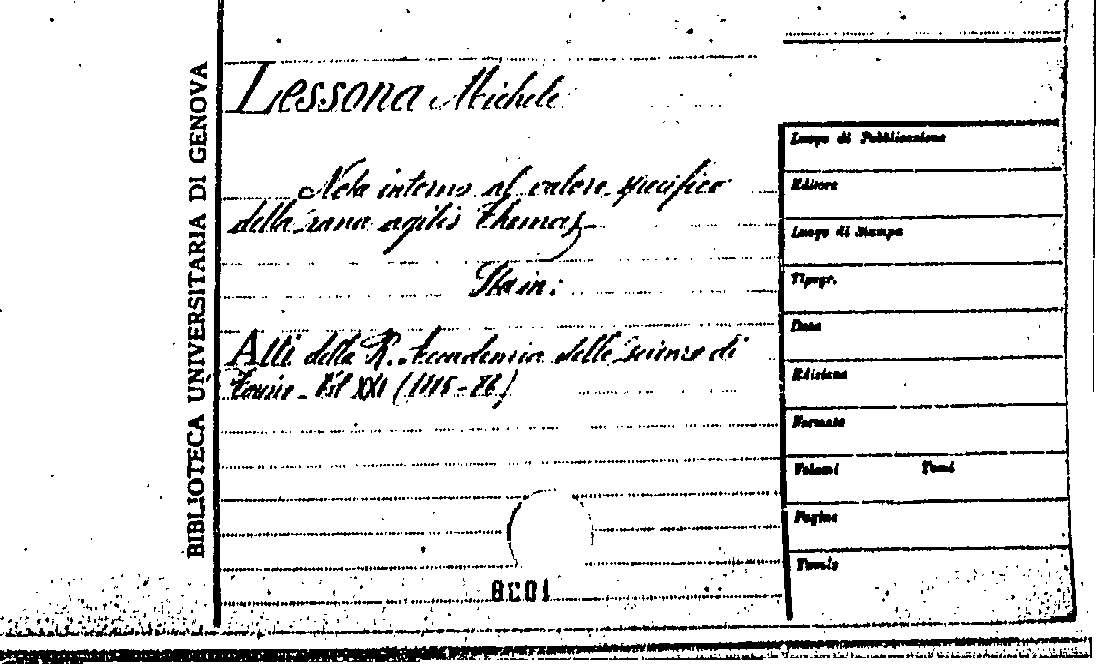 BIBLIOTECA UNIVERSITARIA DI GENOVA
Lessona Michele
Nota intorno al valore specifico
della rana agilis Thomas
Sta in:
Atti della R. Accademia delle scienze di
Torino - Vol XXI (1885-86)
Luogo di Pubblicazione
Editore
Luogo di Stampa
Tipogr.
Data
Edizione
Formato
Volumi Tomi
Pagine
Tavole